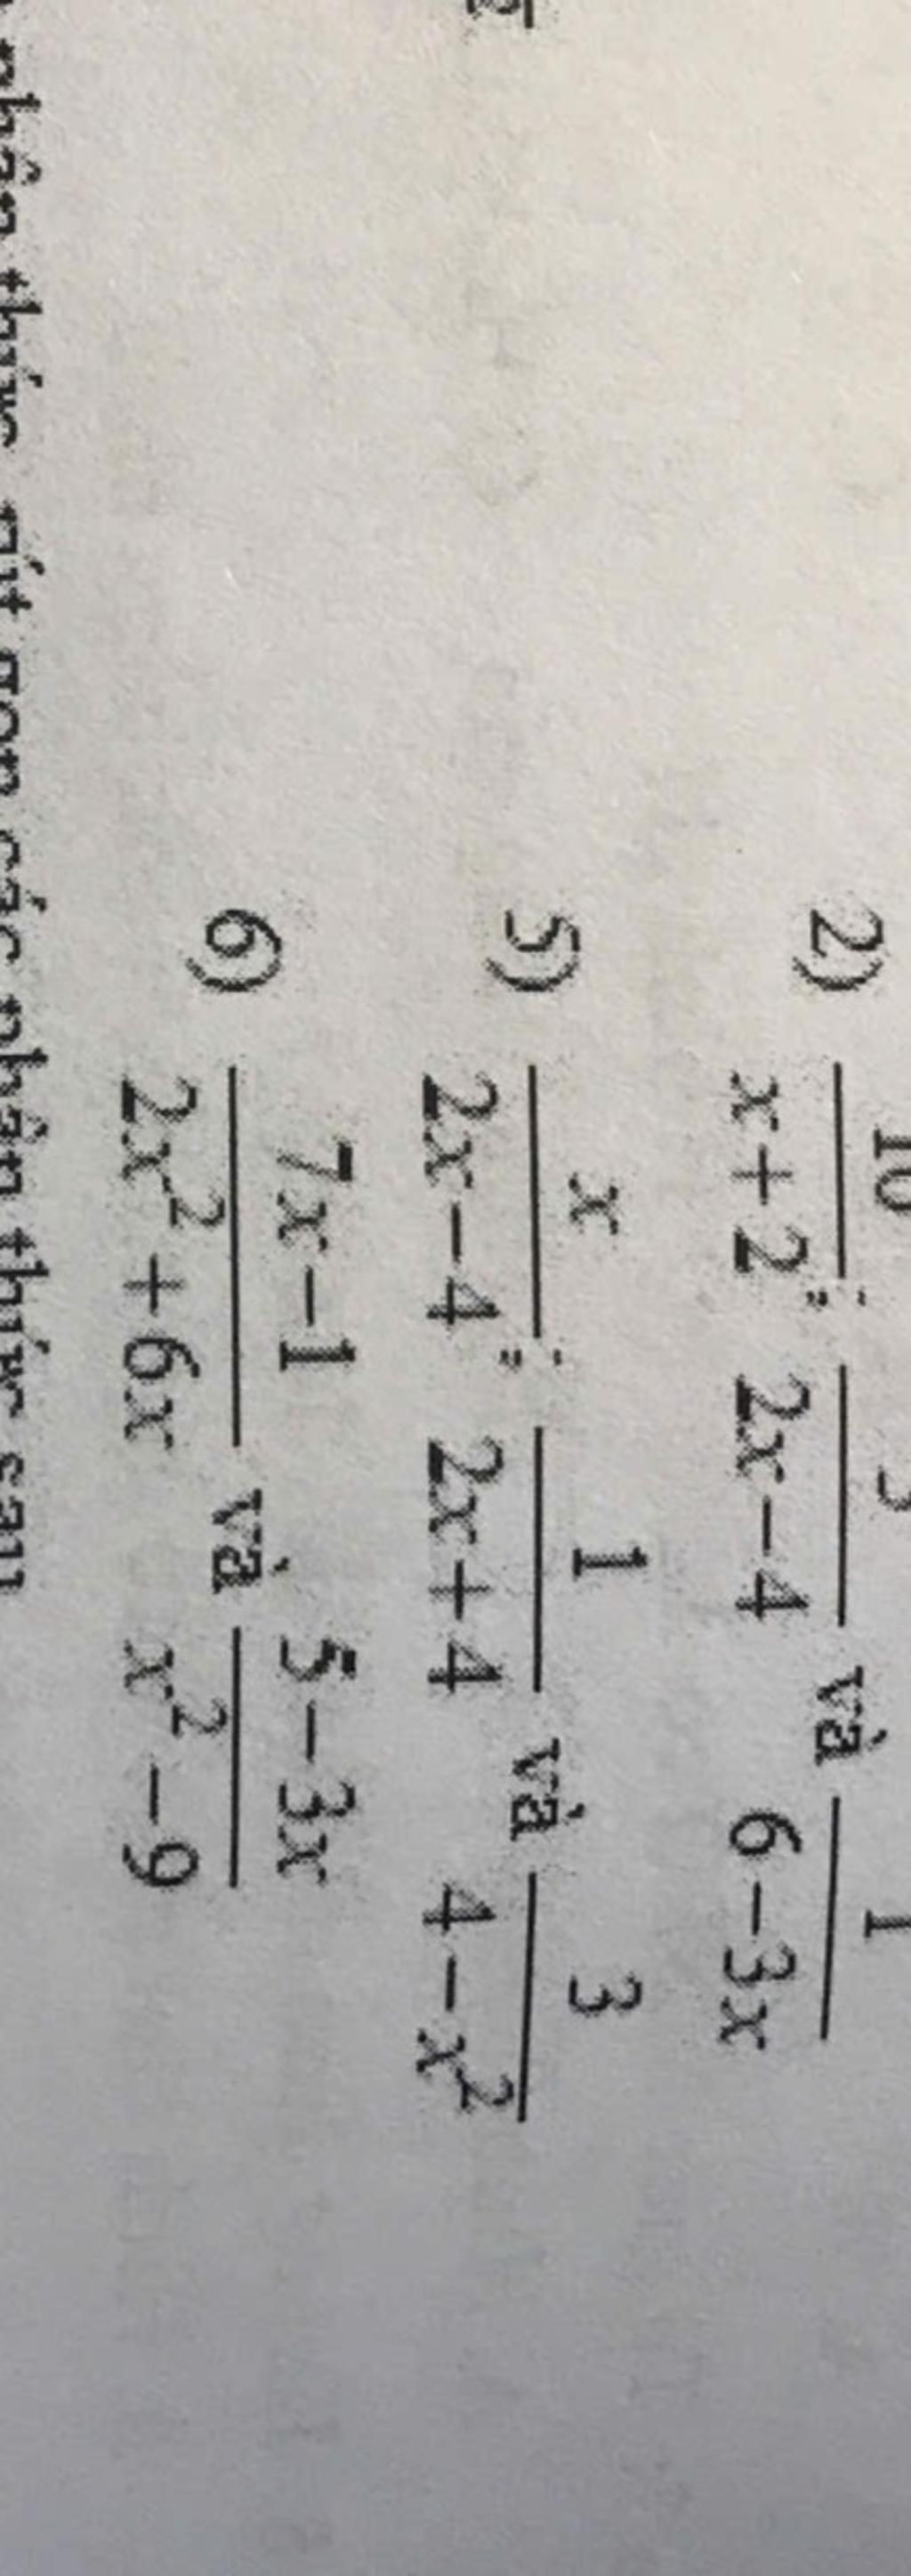 2) 10/(x+2); 5/(2x-4) và 1/(6-3x)
5) x/(2x-4); 1/(2x+4) và 3/(4-x²)
6) (7x-1)/(2x²+6x) và (5-3x)/(x²-9)
phân thức, rút gọn các phân thức sau